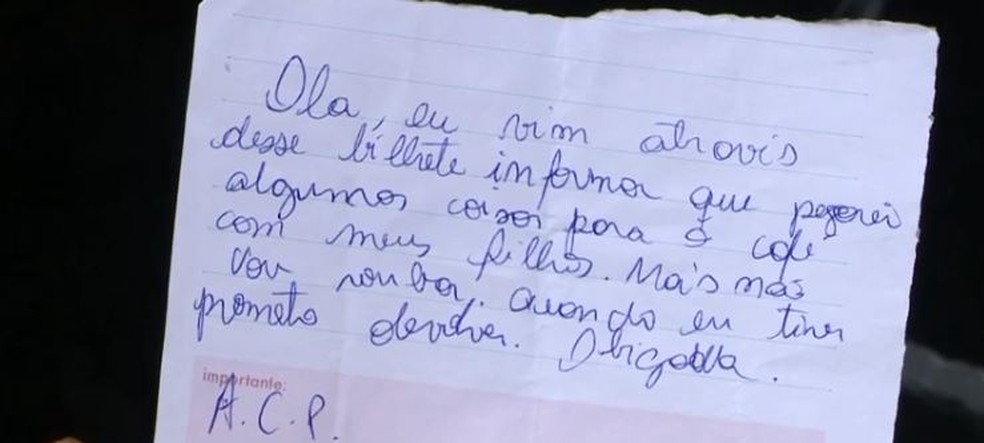 Ola, eu vim atravis
desse bilhete informar que pegarei
algumas coisas para o café
com meus filhos. Mais não
vou rouba, quando eu tiver
prometo devolver. Obigada.
importante:
A.C.P.